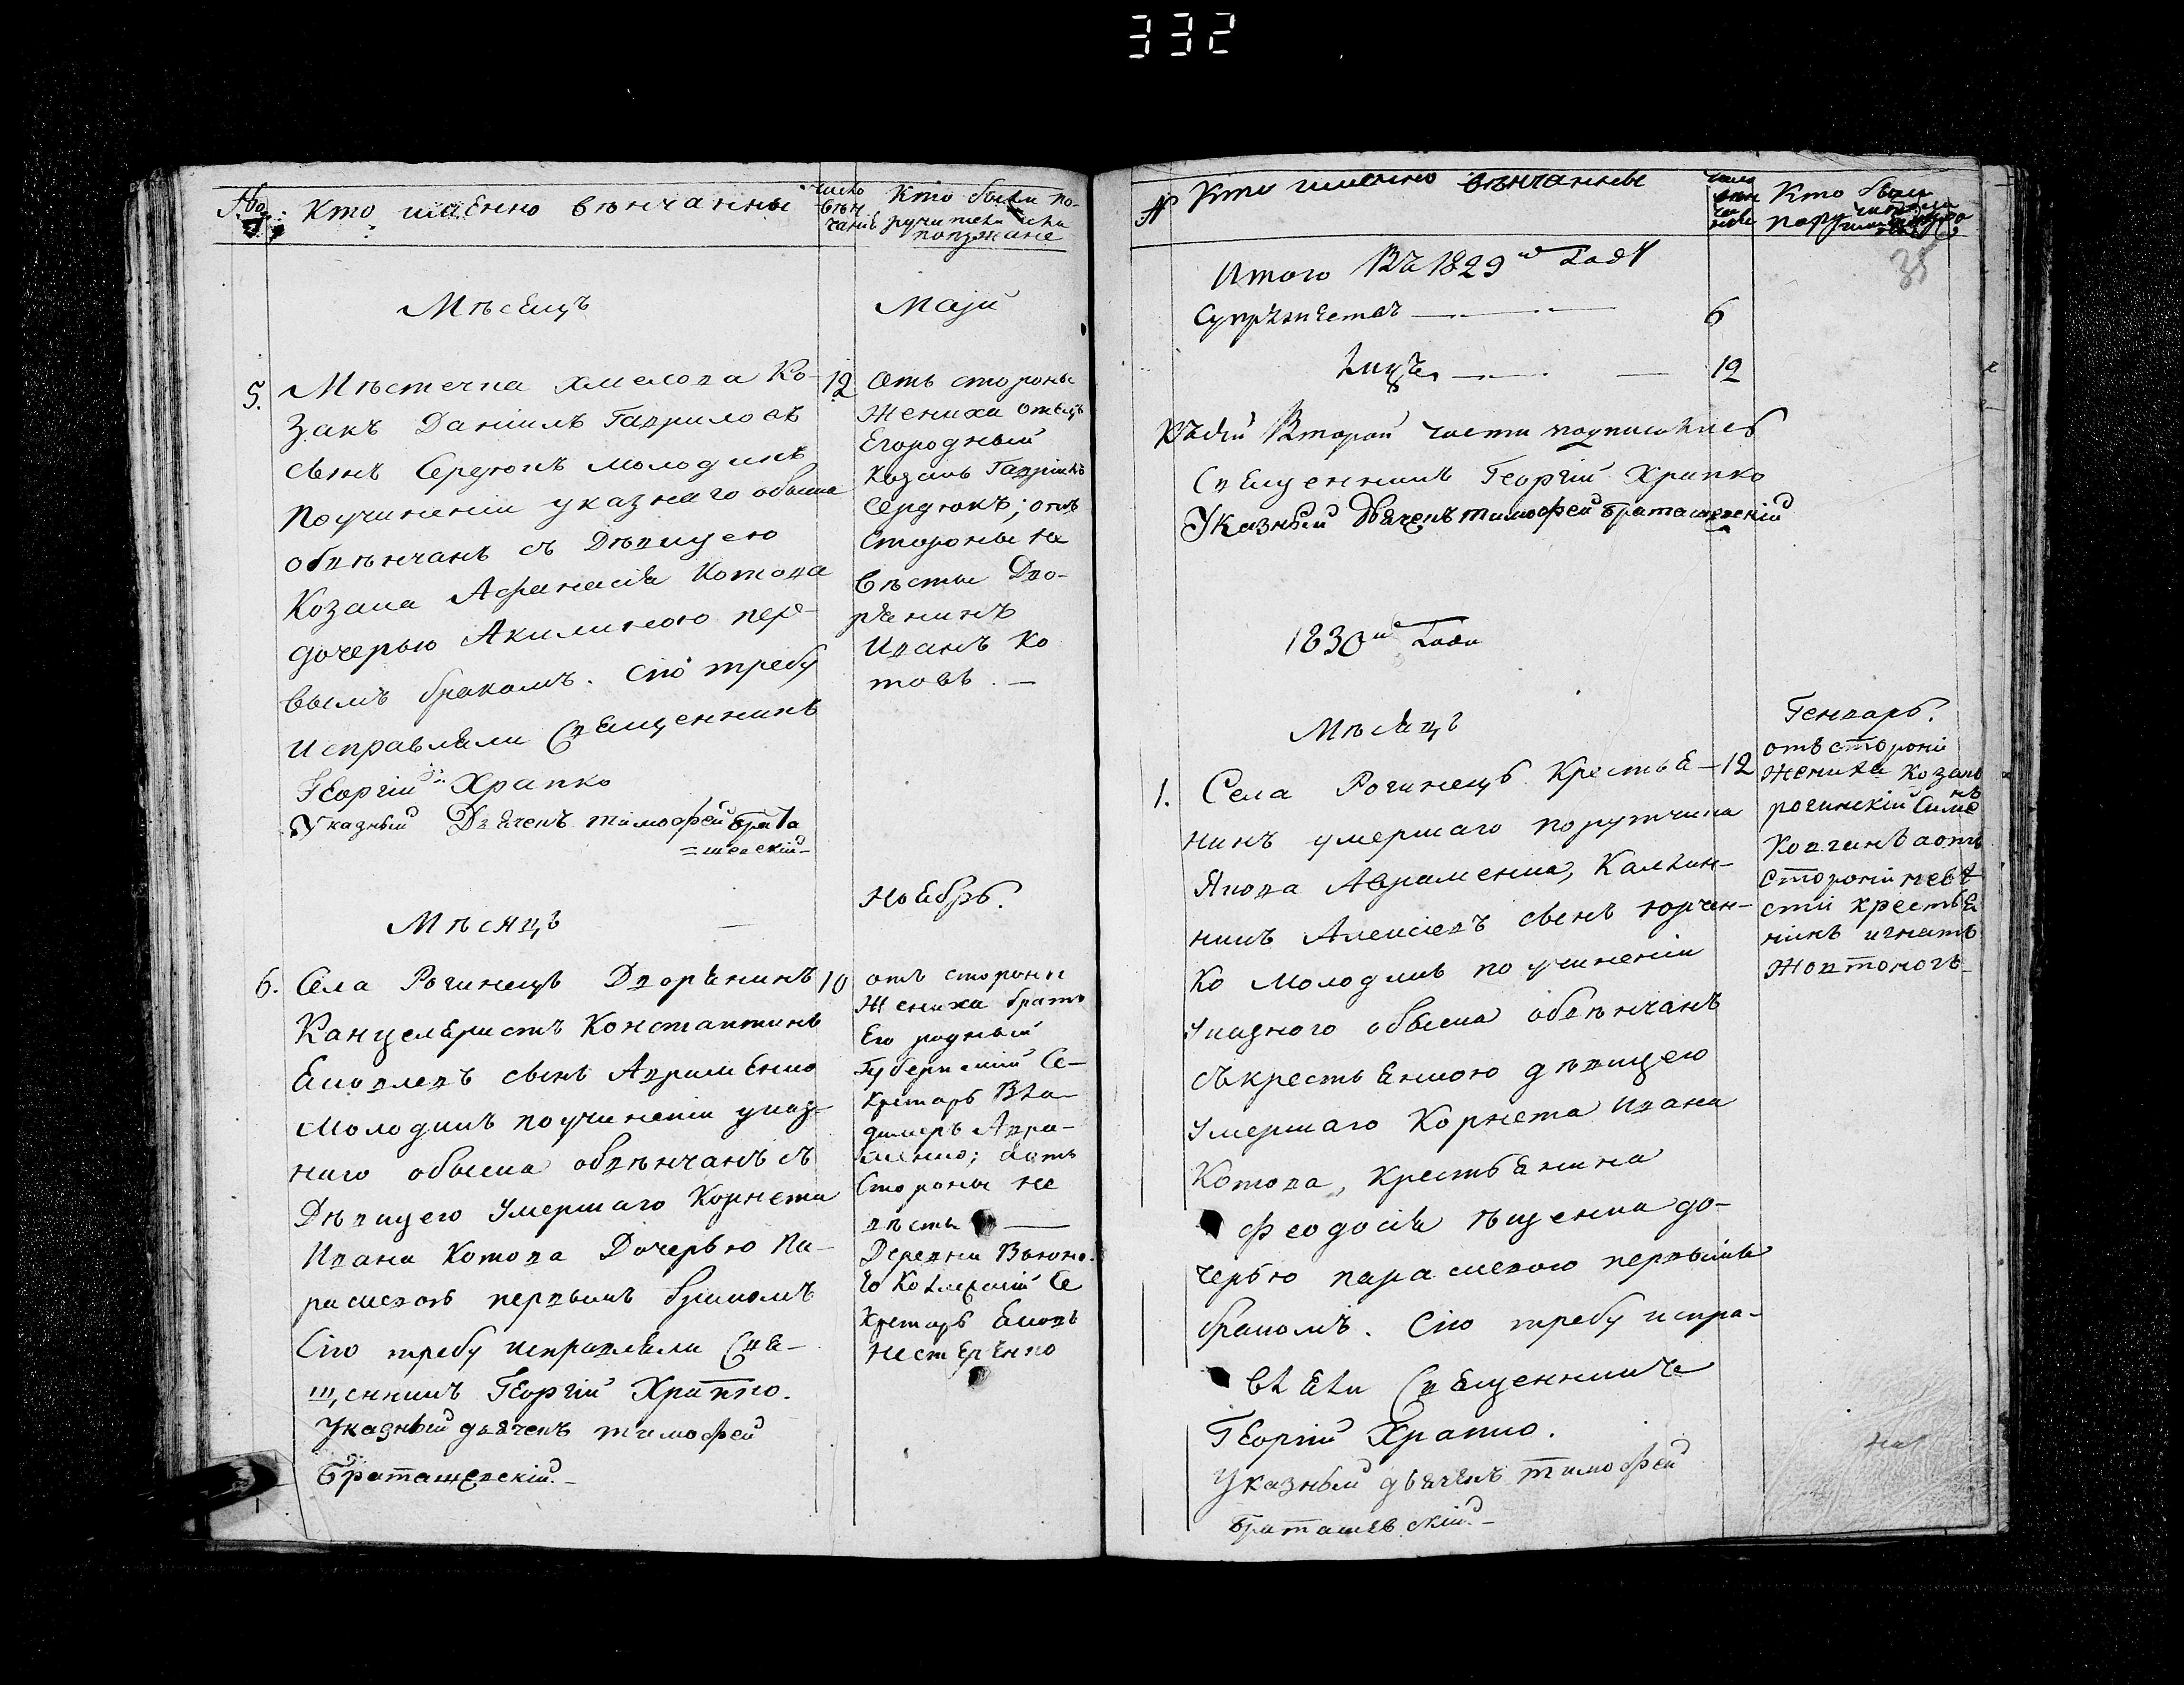 332
№
Кто имѣнно вѣнчанны
число
вѣн
чанiѣ
Кто были по-
ручители или
поизжане
Мѣсѣцъ
Маји
5.
Мѣстечка Хмелова Ко-
закъ Данiилъ Гаврiловъ
сынъ Сердюкъ молодикъ
по учиненiи указнаго обыска
обвѣнчанъ съ Дѣвицею
Козака Афанасiя Котова
дочерью Акилиною пер-
вымъ бракомъ. Сiю требу
исправляли Священникъ
Георгiй Храпко
Указный Дьячекъ Тимофей Брата
=шевскiй
12
Отъ стороны
Жениха отецъ
Его родный
Козакъ Гаврiилъ
Сердюкъ; отъ
Стороны не
вѣсты Дво-
рянинъ
Иванъ Ко
товъ. —
Мѣсяцъ
Ноябрь.
6.
Села Рогинецъ Дворянинъ
Канцеляристъ Константинъ
Яковлевъ сынъ Авраменко
молодикъ по учиненiи указ-
наго обыска обвѣнчанъ съ
Дѣвицею Умершаго Корнета
Ивана Котова Дочерью Па-
раскевою первымъ бракомъ
Сiю требу исправляли Свя-
щенникъ Георгiй Храпко.
Указный дьячекъ Тимофей
Браташевскiй.
10
отъ стороны
Жениха братъ
Его родный
Губернскiй Се-
кретарь Вла-
димеръ Авра-
менко; а отъ
Стороны не
вѣсты —
Деревни Вьюно.
го Колежскiй Се
кретарь Яковъ
Нестеренко
№
Кто именно вѣнчанны
Кто были
35
Итого Въ 1829м Годѣ
Супружествъ 6
Лицъ 12
Къ сiй Второй части подписались
Священникъ Георгiй Храпко
Указный Дьячекъ Тимофей Браташевскiй
1830й Годъ
Мѣсяцъ
Генварь.
1.
Села Рогинецъ Крестья-
нинъ умершаго порутчика
Якова Авраменка, Калин-
никъ Алексiевъ сынъ Юрчен-
ко Молодикъ по учиненiи
указного обыска обвѣнчанъ
съ крестьянкою дѣвицею
умершаго Корнета Ивана
Котова, Крестьянина
Феодосiя Ященка до-
черью Параскевою первымъ
бракомъ. Сiю требу испра-
вляли Священникъ
Георгiй Храпко.
Указный дьячекъ Тимофей
Браташевскiй.
12
отъ сторонi
жениха козакъ
рогинскiй Симе
нъ
Ковганъ а отъ
сторонi невѣ
стi крестья
нинъ Игнатъ
Жовтоногъ